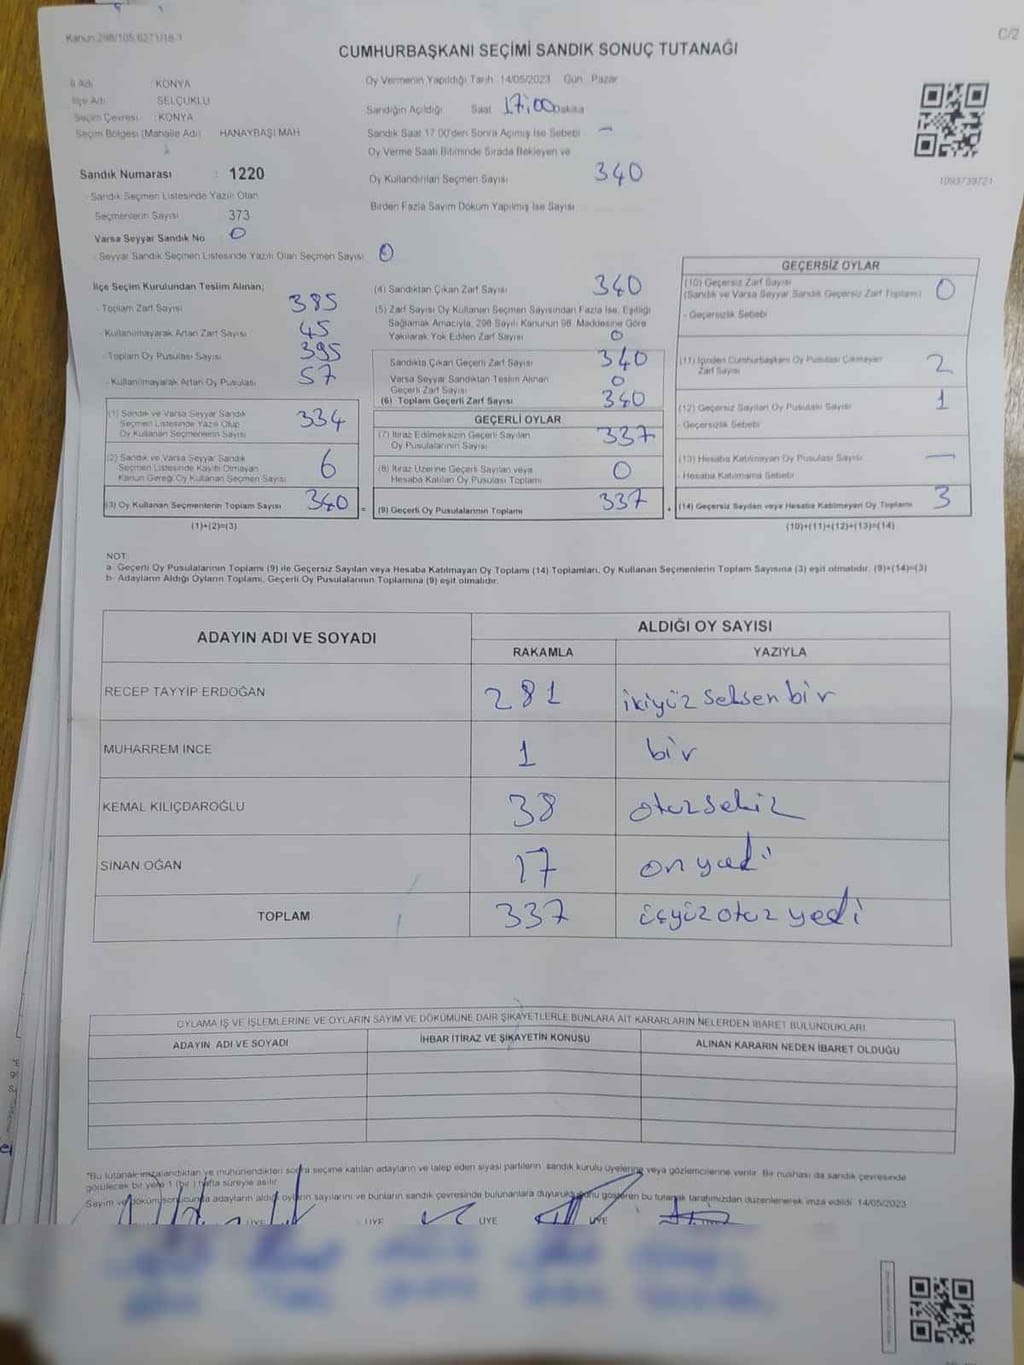 Kanun:298/105,6271/18-1
C/2
CUMHURBAŞKANI SEÇİMİ SANDIK SONUÇ TUTANAĞI
İl Adı : KONYA
İlçe Adı : SELÇUKLU
Seçim Çevresi : KONYA
Seçim Bölgesi (Mahalle Adı) HANAYBAŞI MAH
Oy Vermenin Yapıldığı Tarih 14/05/2023 Gün Pazar
Sandığın Açıldığı Saat 17:00 Dakika
Sandık Saat 17.00'den Sonra Açımış İse Sebebi —
Oy Verme Saati Bitiminde Sırada Bekleyen ve
Oy Kullandırılan Seçmen Sayısı 340
Birden Fazla Sayım Döküm Yapılmış İse Sayısı
1093739721
Sandık Numarası : 1220
Sandık Seçmen Listesinde Yazılı Olan
Seçmenlerin Sayısı 373
Varsa Seyyar Sandık No 0
Seyyar Sandık Seçmen Listesinde Yazılı Olan Seçmen Sayısı 0
İlçe Seçim Kurulundan Teslim Alınan;
- Toplam Zarf Sayısı 385
- Kullanılmayarak Artan Zarf Sayısı 45
- Toplam Oy Pusulası Sayısı 395
- Kullanılmayarak Artan Oy Pusulası 57
(1) Sandık ve Varsa Seyyar Sandık
Seçmen Listesinde Yazılı Olup
Oy Kullanan Seçmenlerin Sayısı 334
(2) Sandık ve Varsa Seyyar Sandık
Seçmen Listesinde Kayıtlı Olmayan
Kanun Gereği Oy Kullanan Seçmen Sayısı 6
(3) Oy Kullanan Seçmenlerin Toplam Sayısı 340 =
(1)+(2)=(3)
(4) Sandıktan Çıkan Zarf Sayısı 340
(5) Zarf Sayısı Oy Kullanan Seçmen Sayısından Fazla İse, Eşitliği
Sağlamak Amacıyla, 298 Sayılı Kanunun 98. Maddesine Göre
Yakılarak Yok Edilen Zarf Sayısı 0
Sandıkta Çıkan Geçerli Zarf Sayısı 340
Varsa Seyyar Sandıktan Teslim Alınan
Geçerli Zarf Sayısı 0
(6) Toplam Geçerli Zarf Sayısı 340
GEÇERLİ OYLAR
(7) İtiraz Edilmeksizin Geçerli Sayılan
Oy Pusulalarının Sayısı 337
(8) İtiraz Üzerine Geçerli Sayılan veya
Hesaba Katılan Oy Pusulası Toplamı 0
(9) Geçerli Oy Pusulalarının Toplamı 337 +
GEÇERSİZ OYLAR
(10) Geçersiz Zarf Sayısı 0
(Sandık ve Varsa Seyyar Sandık Geçersiz Zarf Toplamı)
- Geçersizlik Sebebi
(11) İçinden Cumhurbaşkanı Oy Pusulası Çıkmayan
Zarf Sayısı 2
(12) Geçersiz Sayılan Oy Pusulası Sayısı 1
- Geçersizlik Sebebi
(13) Hesaba Katılmayan Oy Pusulası Sayısı —
- Hesaba Katılmama Sebebi
(14) Geçersiz Sayılan veya Hesaba Katılmayan Oy Toplamı 3
(10)+(11)+(12)+(13)=(14)
NOT:
a- Geçerli Oy Pusulalarının Toplamı (9) ile Geçersiz Sayılan veya Hesaba Katılmayan Oy Toplamı (14) Toplamları, Oy Kullanan Seçmenlerin Toplam Sayısına (3) eşit olmalıdır. (9)+(14)=(3)
b- Adayların Aldığı Oyların Toplamı, Geçerli Oy Pusulalarının Toplamına (9) eşit olmalıdır.
ADAYIN ADI VE SOYADI
ALDIĞI OY SAYISI
RAKAMLA YAZIYLA
RECEP TAYYİP ERDOĞAN 281 ikiyüz seksen bir
MUHARREM İNCE 1 bir
KEMAL KILIÇDAROĞLU 38 otuzsekiz
SİNAN OĞAN 17 on yedi
TOPLAM 337 üçyüz otuz yedi
OYLAMA İŞ VE İŞLEMLERİNE VE OYLARIN SAYIM VE DÖKÜMÜNE DAİR ŞİKAYETLERLE BUNLARA AİT KARARLARIN NELERDEN İBARET BULUNDUKLARI
ADAYIN ADI VE SOYADI İHBAR İTİRAZ VE ŞİKAYETİN KONUSU ALINAN KARARIN NEDEN İBARET OLDUĞU
*Bu tutanak imzalandıktan ve mühürlendikten sonra seçime katılan adayların ve talep eden siyasi partilerin sandık kurulu üyelerine veya gözlemcilerine verilir. Bir nushası da sandık çevresinde
görülecek bir yere 1 (bir ) hafta süreyle asılır.
Sayım ve döküm sonucunda adayların aldığı oyların sayılarını ve bunların sandık çevresinde bulunanlara duyurulduğunu gösteren bu tutanak tarafımızdan düzenlenerek imza edildi. 14/05/2023
ÜYE ÜYE ÜYE ÜYE